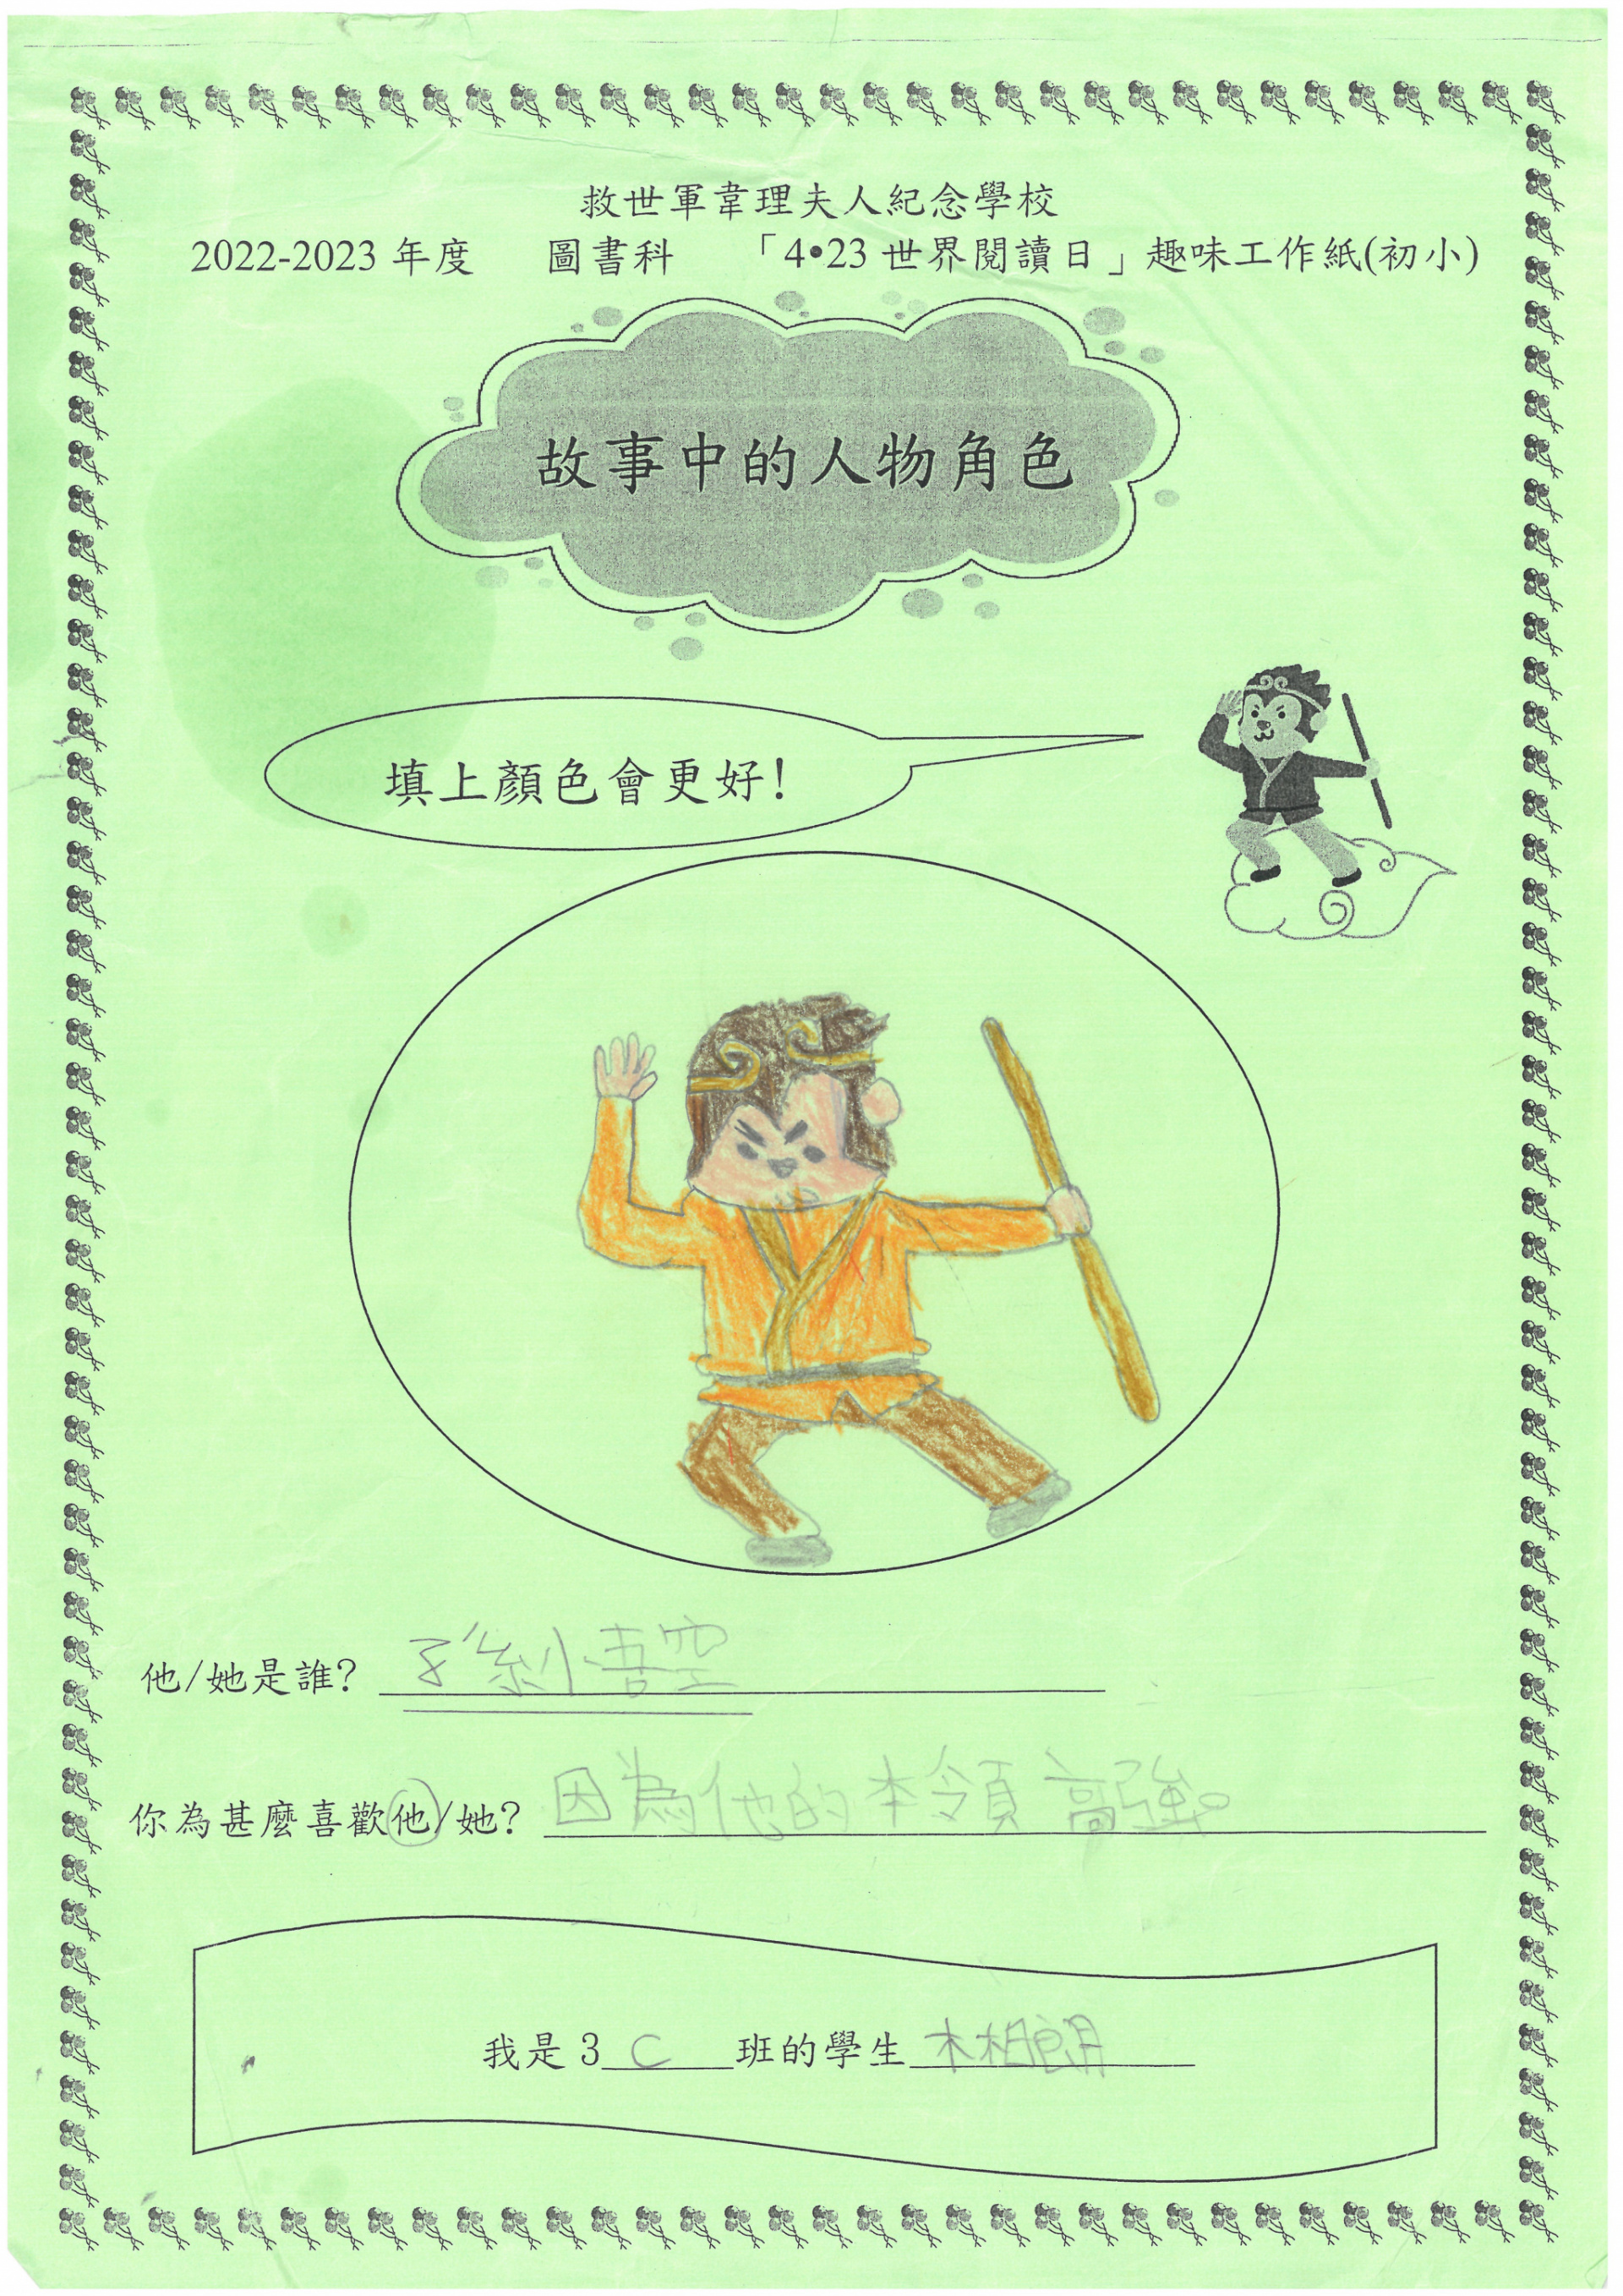 救世軍韋理夫人紀念學校
2022-2023 年度 圖書科 「4•23 世界閱讀日」趣味工作紙(初小)
故事中的人物角色
填上顏色會更好!
他/她是誰? 孫小悟空
你為甚麼喜歡他/她? 因為他的本領高強。
我是 3 C 班的學生 木相朗